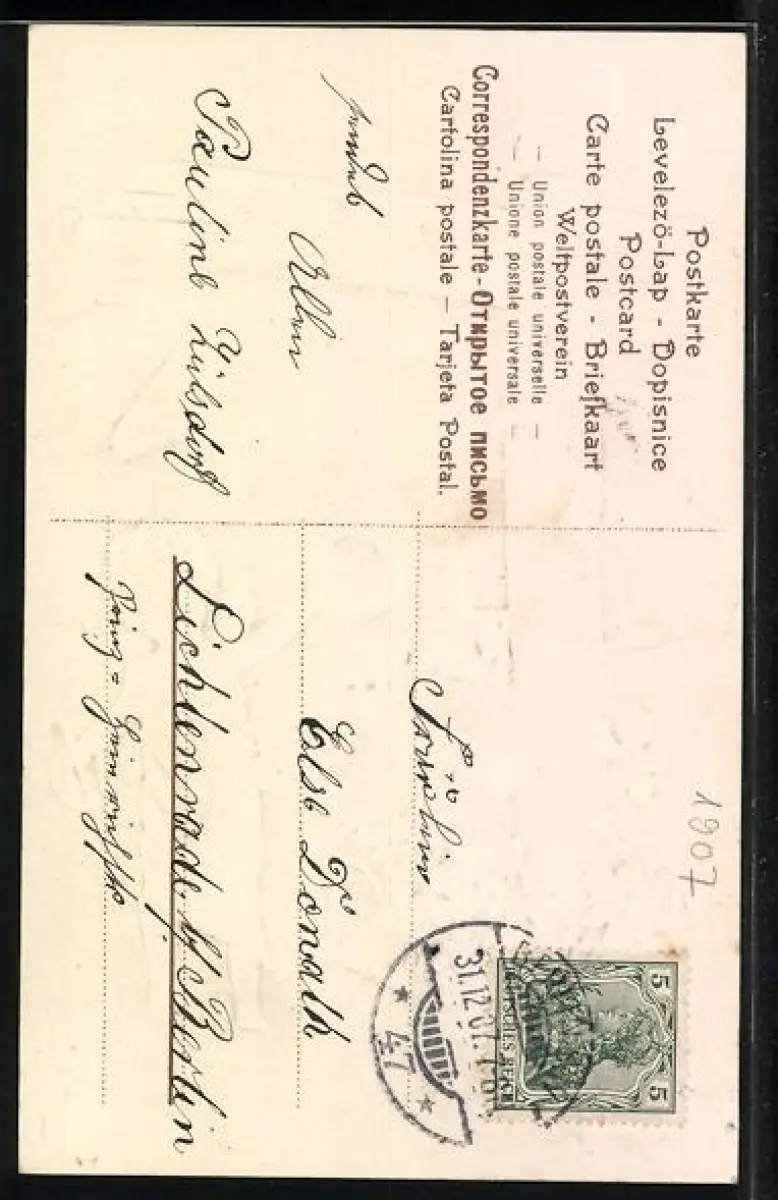 Postkarte
Levelező-Lap - Dopisnice
Postcard
Carte postale - Briefkaart
Weltpostverein
— Union postale universelle —
— Unione postale universale —
Correspondenzkarte - Открытое письмо
Cartolina postale — Tarjeta Postal.
1907
5 5
DEUTSCHES REICH
31.12.07.
* 47 *
Fräulein
Else Donath
Lichtenrade b/Berlin
Prinz-Heinrichstr.
Pauline